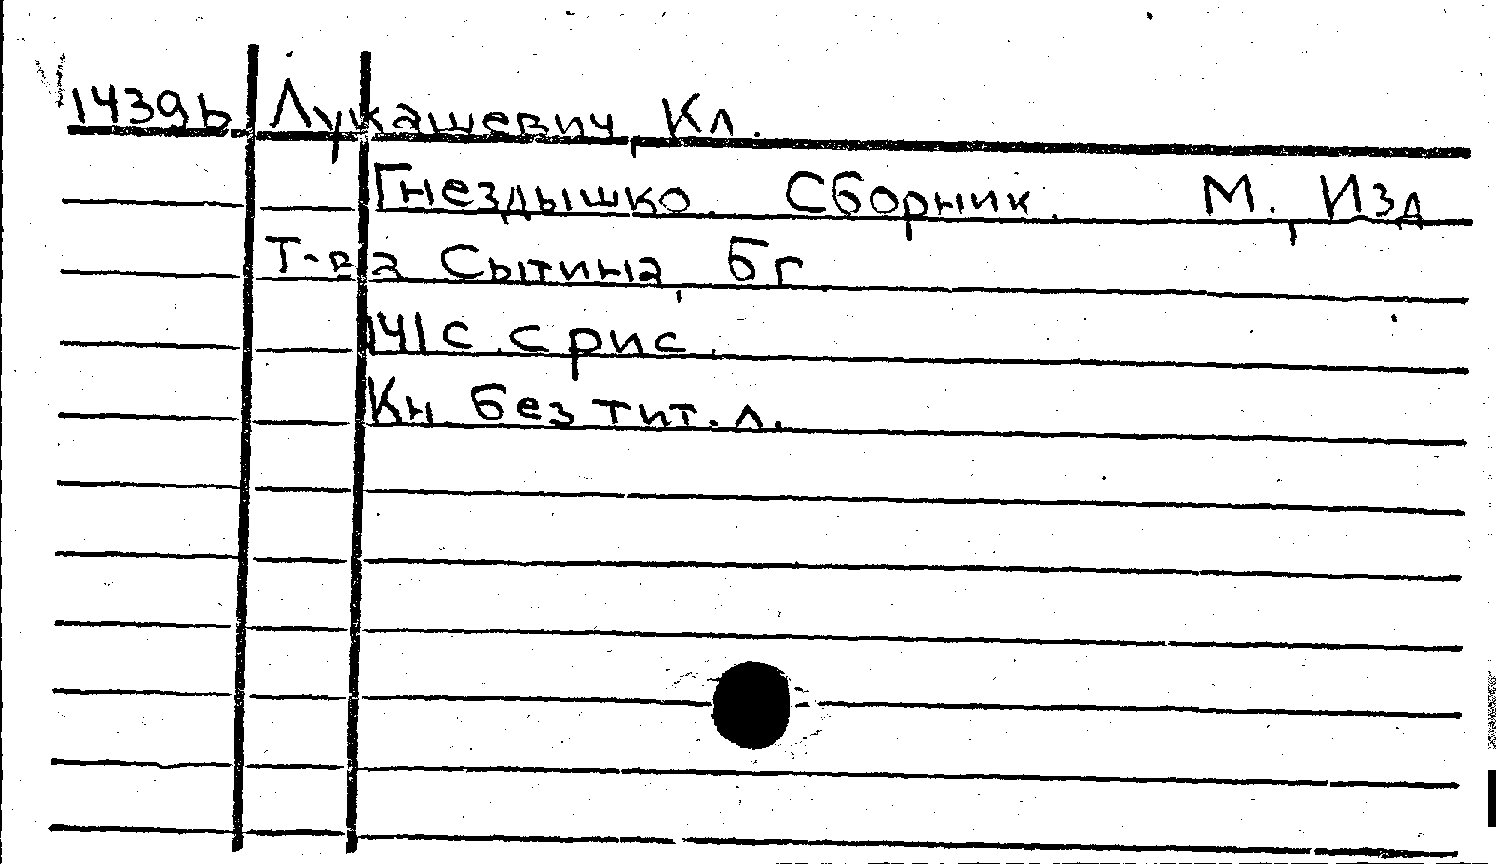 1439b Лукашевич, Кл.
Гнездышко. Сборник. М., Изд.
Т-ва Сытина, б г.
141 с. с рис.
Кн без тит. л.